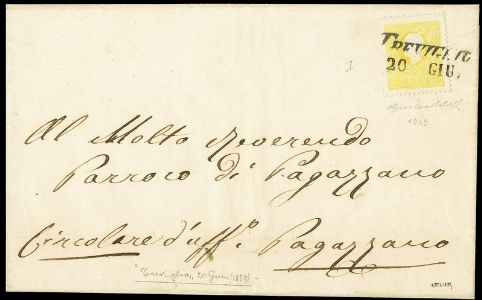 TREVIGLIO
20 GIU.
Al Molto Reverendo
Parroco di Pagazzano
Circolare d'uff.o Pagazzano
Treviglio, 20 Giu. (1859)
1949